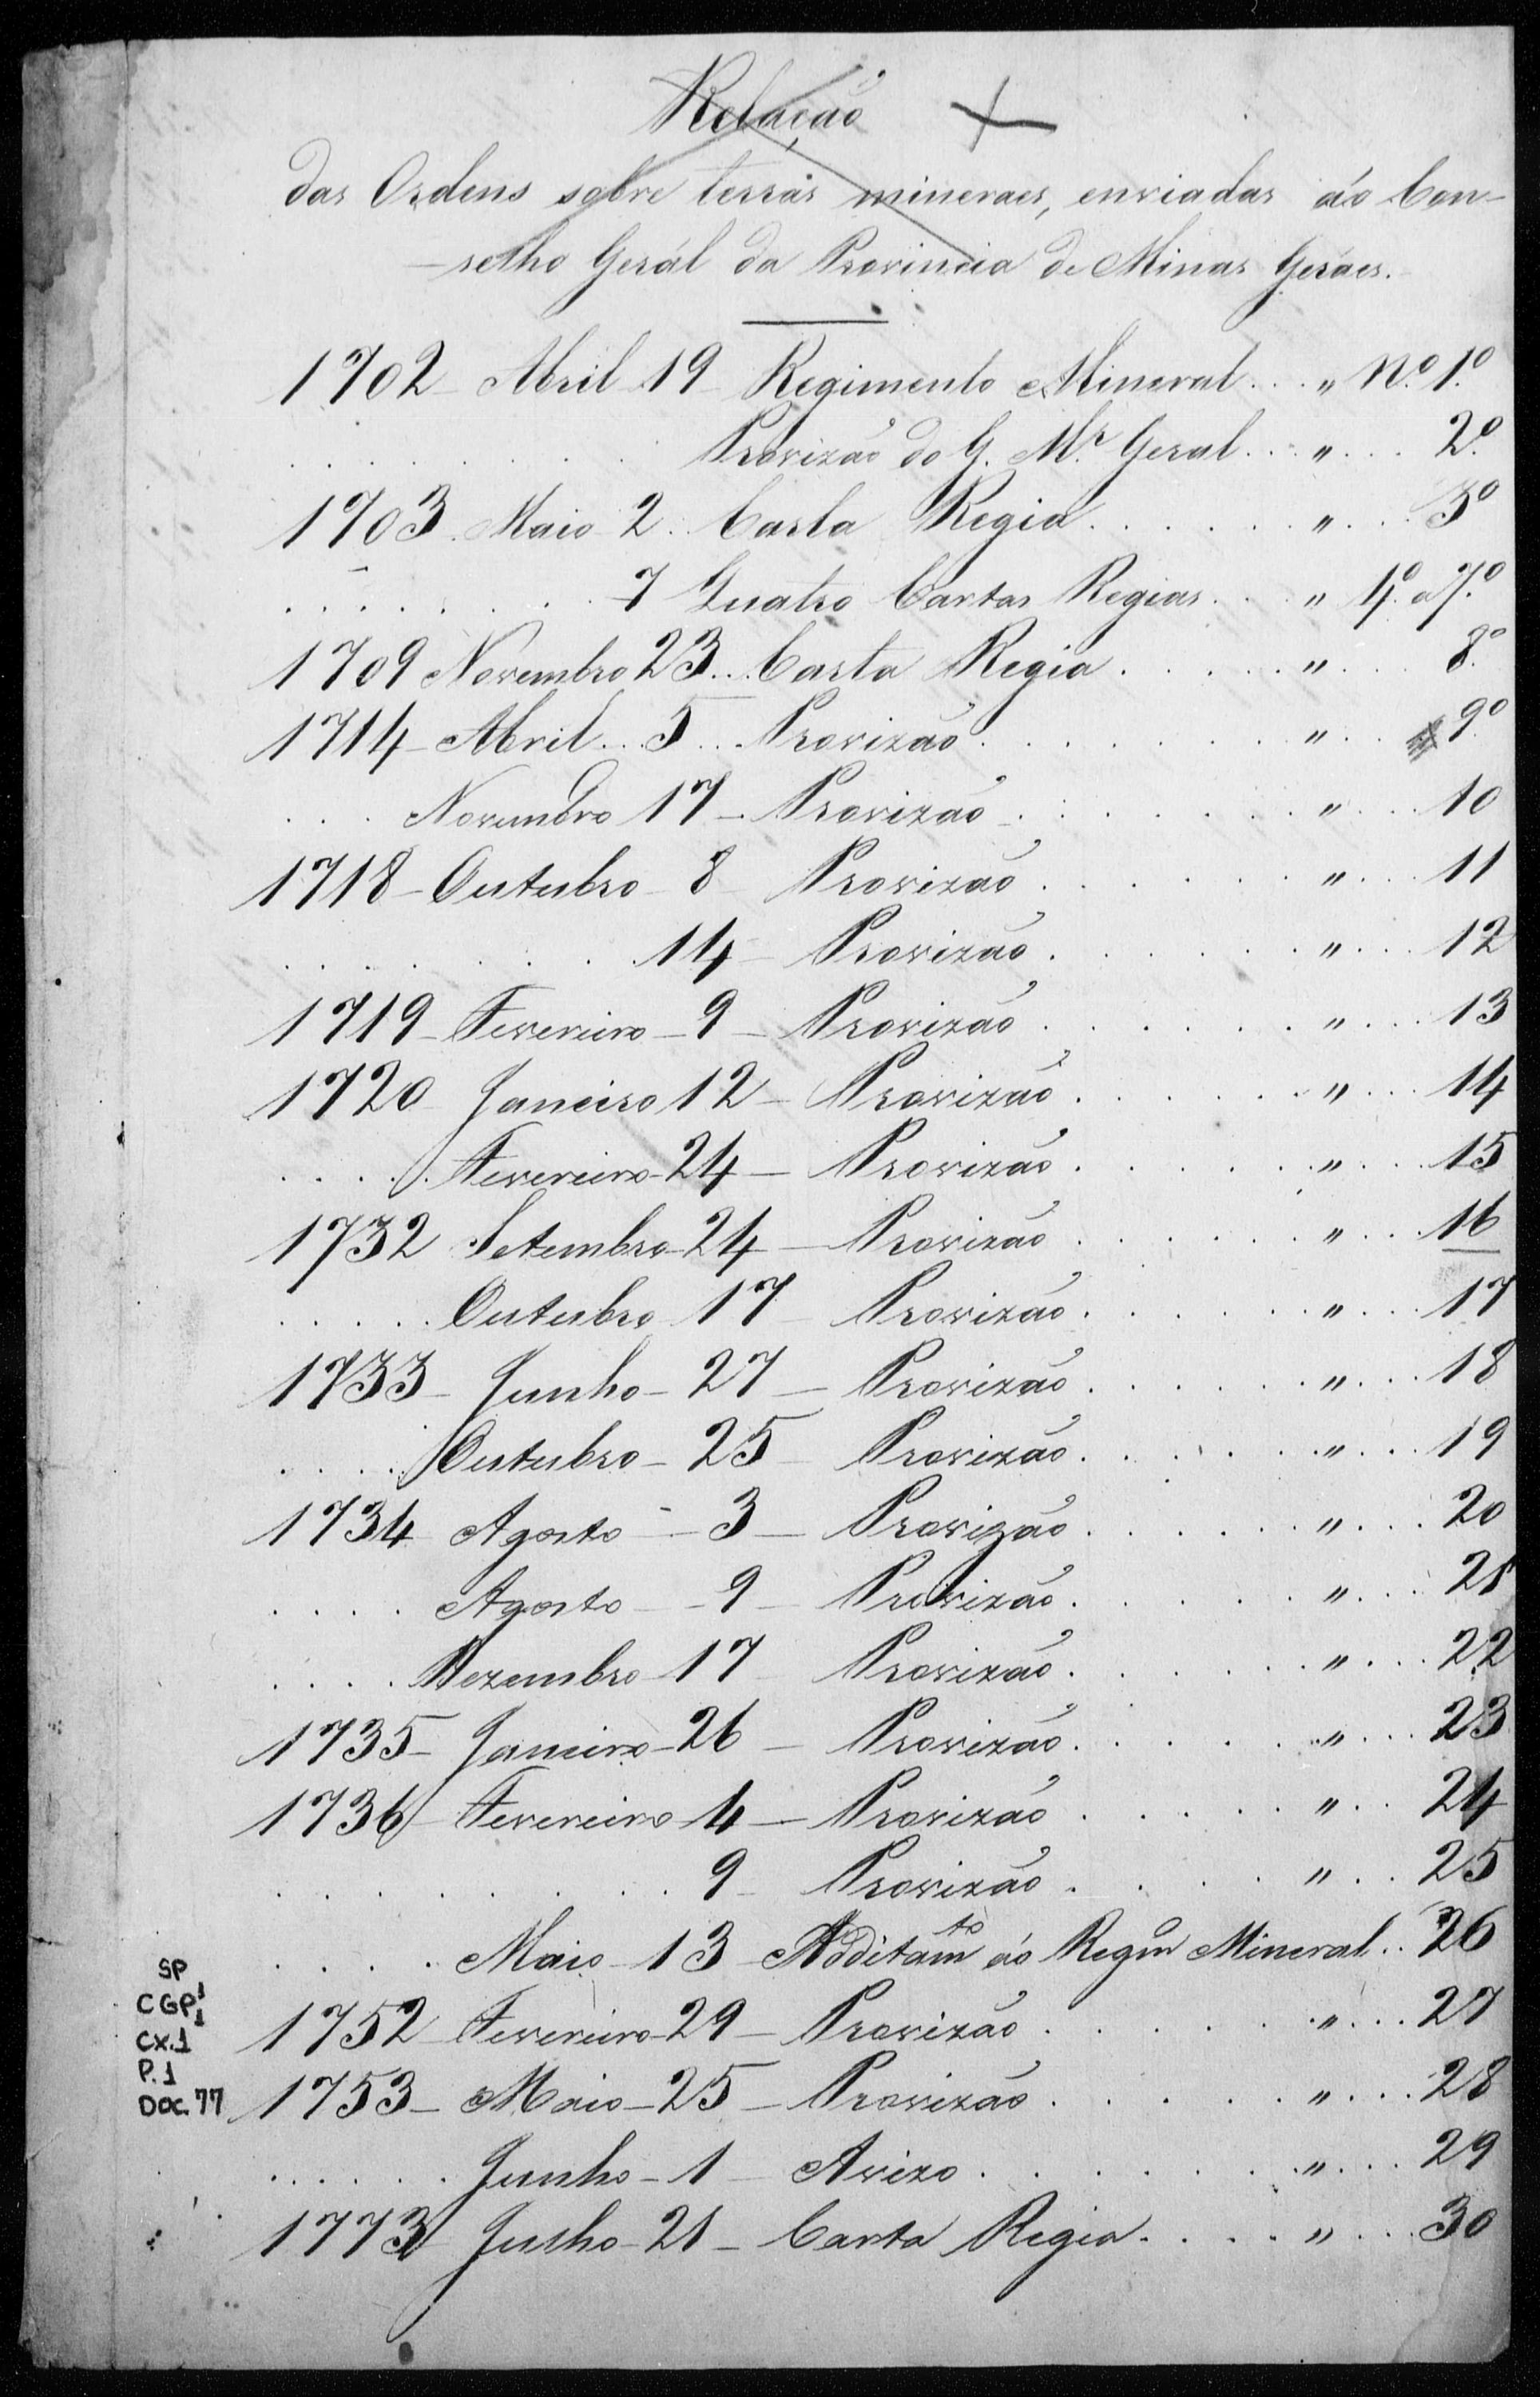 Relação
das Ordens sobre terras mineraes, enviadas áo Con-
-selho Gerál da Provincia de Minas Geráes.
1702 - Abril 19 - Regimento Mineral . . . " N.º 1.º
. . . . . . . . . Provizão do G. M.r Geral . . . " . . . 2.º
1703 . Maio 2 . . Carta Regia . . . . . . " . . . 3º
. . . . . . . . . 7 Quatro Cartas Regias . . . " 4.º a 7.º
1709 Novembro 23 . . . Carta Regia . . . . . " . . . 8.º
1714 - Abril . . . 5 . . . Provizão . . . . . . . . " . . . 9.º
. . . Novembro 17 - Provizão . . . . . . . . " . . . 10
1718 - Outubro - 8 - Provizão . . . . . . . " . . . 11
. . . . . . . . . 14 - Provizão . . . . . . . " . . . 12
1719 - Fevereiro - 9 - Provizão . . . . . . . " . . . 13
1720 - Janeiro 12 - Provizão . . . . . . . " . . . 14
. . . . . Fevereiro - 24 - Provizão . . . . . . . " . . . 15
1732 Setembro - 24 - Provizão . . . . . . " . . . 16
. . . . . Outubro 17 - Provizão . . . . . . " . . . 17
1733 - Junho - 27 - Provizão . . . . . . " . . . 18
. . . . . Outubro - 25 - Provizão . . . . . . " . . . 19
1734 Agosto - 3 - Provizão . . . . . . " . . . 20
. . . . Agosto - 9 - Provizão . . . . . . " . . . 21
. . . . Dezembro - 17 - Provizão . . . . . . " . . . 22
1735 - Janeiro - 26 - Provizão . . . . . . " . . . 23
1736 - Fevereiro 4 - Provizão . . . . . " . . . 24
. . . . . . . . . 9 - Provizão . . . . . " . . . 25
. . . . . Maio - 13 - Additamto áo Regim Mineral . . 26
1752 - Fevereiro - 29 - Provizão . . . . . . " . . . 27
1753 - Maio - 25 - Provizão . . . . . . " . . . 28
. . . . . . Junho - 1 - Avizo . . . . . . . " . . . 29
1773 Julho - 21 - Carta Regia . . . . " . . . 30
SP
CGP¹1
CX.1
P.1
DOC.77